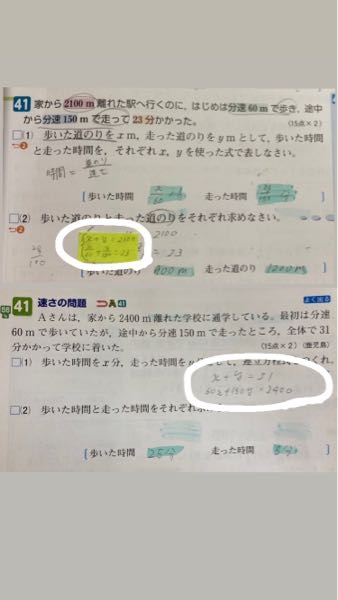 41 家から2100 m 離れた駅へ行くのに，はじめは分速60 mで歩き，途中
から分速150 mで走って23分かかった。
(15点×2)
□(1) 歩いた道のりをx m，走った道のりをy mとして，歩いた時間
と走った時間を，それぞれx，yを使った式で表しなさい。
時間 = 道のり/速さ
[ 歩いた時間 x/60 走った時間
□(2) 歩いた道のりと走った道のりをそれぞれ求めなさい。
x + y = 2100
x/60 + y/150 = 23
[歩いた道のり 900m 走った道のり 1200m
41 速さの問題 41 よく出る
Aさんは，家から2400 m離れた学校に通学している。最初は分速
60 mで歩いていたが，途中から分速150 mで走ったところ，全体で31
分かかって学校に着いた。
(15点×2) (鹿児島)
□(1) 歩いた時間をx分，走った時間を
x + y = 31
60x+150y=2400
□(2) 歩いた時間と走った時間をそれぞれ
[ 歩いた時間 25分 走った時間